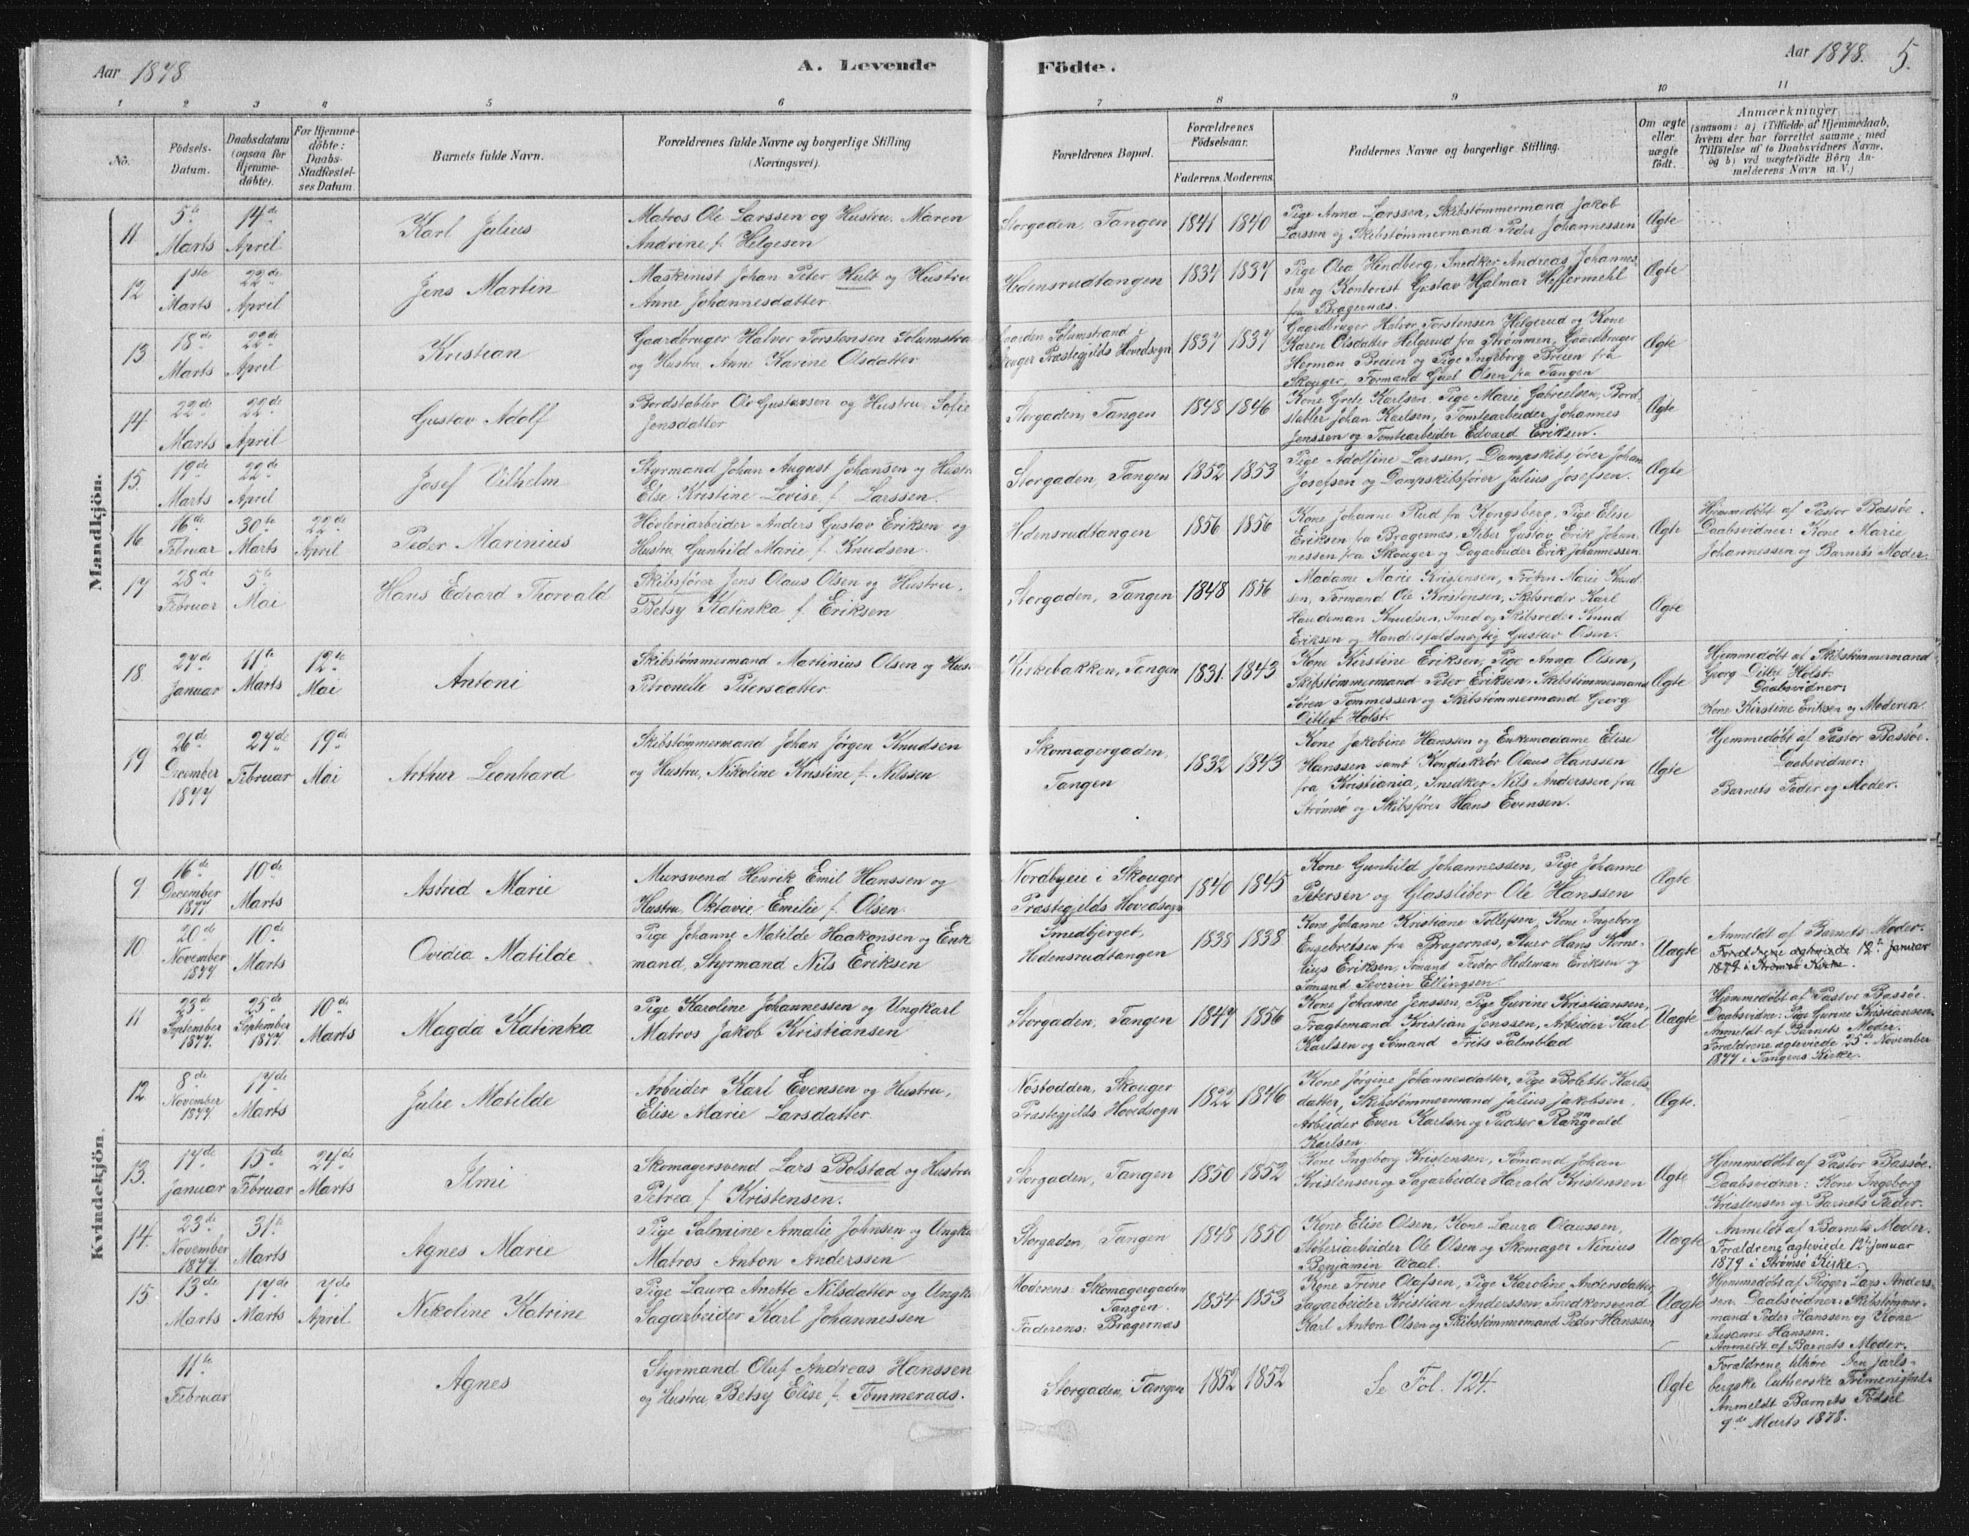 Aar 1878
A. Levende
Födte.
Aar 1878. 5.
1 2 3 4 5 6 7 8 9 10 11
No.
Födsels-Datum.
Daabsdatum (ogsaa for Hjemmedöbte).
For Hjemmedöbte: Daabs-Stadfæstelses Datum.
Barnets fulde Navn.
Forældrenes fulde Navne og borgerlige Stilling (Næringsvei).
Forældrenes Bopæl.
Forældrenes Födselsaar.
Faderens. Moderens.
Faddernes Navne og borgerlige Stilling.
Om ægte eller uægte födt.
Anmærkninger
(saasom: a) i Tilfælde af Hjemmedaab, hvem der har forrettet samme, med Tilföielse af to Daabsvidners Navne, og b) ved uægtefödte Börn Anmelderens Navn m. V.)
Mandkjön.
11 5te Marts 14de April
Karl Julius
Matros Ole Larssen og Hustru Maren
Andrine f. Helgesen
Storgaden, Tangen 1841 1840
Pige Anna Larssen, Skibstømmermand Jakob
Larssen og Skibstømmermand Peder Johannessen
Ægte
12 1ste Marts 22de April
Jens Martin
Maskinist Johan Peter Hult og Hustru
Anne Johannesdatter
Hedensrudtangen 1837 1837
Pige Olea Hindberg, Snedker Andreas Johannes-
sen og Kontorist Gustav Hjalmar Heffermehl
fra Bragernæs.
Ægte
13 18de Marts 22de April
Kristian
Gaardbruger Halvor Torstensen Solumstra
og Hustru Anne Karine Olsdatter
Gaarden Solumstrand i
Skouger Præstegjelds Hovedsogn 1837 1837
Gaardbruger Halvor Torstensen Helgerud og Kone
Karen Olsdatter Helgerud fra Strømmen, Gaardbruger
Herman Breien og Pige Ingeborg Breien fra
Skouger, Formand Gjul Olsen fra Tangen
Ægte
14 22de Marts 22de April
Gustav Adolf
Bordstabler Ole Gustavsen og Hustru Sofie
Jensdatter
Storgaden, Tangen 1848 1846
Kone Grete Karlsen, Pige Marie Gabrielsen, Bord-
stabler Johan Karlsen, Tomtearbeider Johannes
Jenssen og Tomtearbeider Edvard Eriksen.
Ægte
15. 19de Marts 22de April
Josef Vilhelm
Styrmand Johan August Johansen og Hustru
Else Kristine Lovise f. Larssen
Storgaden, Tangen 1852 1853
Pige Adolfine Larssen, Dampskibsfører Johan
Josefsen og Dampskibsfører Julius Josefsen.
Ægte
16 16de Februar 30te Marts 22de April
Peder Marinius
Høvleriarbeider Anders Gustav Eriksen og
Hustru Gunhild Marie f. Knudsen.
Hedensrudtangen 1856 1856
Kone Johanne Rud fra Kongsberg, Pige Elise
Eriksen fra Bragernæs, Støber Gustav Erik Johan-
nessen fra Skouger og Dagarbeider Erik Johannessen
Ægte
Hjemmedøbt af Pastor Bassøe.
Daabsvidner: Kone Marie
Johannessen og Barnets Moder.
17 28de Februar 5te Mai
Hans Edvard Thorvald
Skibsfører Jens Olaus Olsen og Hustru,
Betsy Katinka f. Eriksen
Storgaden, Tangen 1848 1856
Madame Marie Kristensen, Frøken Marie Knud-
sen, Formand Ole Kristensen, Skibsreder Karl
Haudeman Knudsen, Smed og Skibsreder Knud
Eriksen og Handelsfuldmægtig Gustav Olsen.
Ægte
18. 27de Januar 11te Marts 12te Mai
Antoni
Skibstømmermand Martinius Olsen og Hus
Petronelle Petersdatter
Kirkebakken, Tangen 1831 1843
Kone Kirstine Eriksen, Pige Anna Olsen,
Skibstømmermand Peter Eriksen, Skibstømmermand
Søren Tommessen og Skibstømmermand Georg
Ditlef Holst.
Ægte
Hjemmedøbt af Skibstømmermand
Georg Ditlef Holst.
Daabsvidner:
Kone Kirstine Eriksen og Moderen.
19 26de December 1877 27de Februar 19de Mai
Arthur Leonhard
Skibstømmermand Johan Jørgen Knudsen
og Hustru, Nikoline Kristine f. Nilssen
Skomagergaden,
Tangen 1832 1843
Kone Jakobine Hanssen og Enkemadame Elise
Hanssen samt Konduktør Olaus Hanssen
fra Kristiania, Snedker Nils Anderssen fra
Strømsø og Skibsfører Hans Evensen.
Ægte
Hjemmedøbt af Pastor Bassøe.
Daabsvidner:
Barnets Fader og Moder.
Kvindekjön.
9 16de December 1877 10de Marts
Astrid Marie
Mursvend Henrik Emil Hanssen og
Hustru, Oktavie Emilie f. Olsen
Nordbyeie i Skouger
Præstegjelds Hovedsogn 1840 1845
Kone Gunhild Johannessen, Pige Johanne
Petersen og Glassliber Ole Hanssen
Ægte
10 20de November 1877 10de Marts
Ovidia Matilde
Pige Johanne Matilde Haakonsen og Enke-
mand, Styrmand Nils Eriksen
Smedbjerget,
Hedensrudtangen 1838 1838
Kone Johanne Kristiane Tollefsen, Kone Ingeborg
Engebretsen fra Bragernæs, Stuer Hans Korne-
lius Eriksen, Sømand Fedor Hedeman Eriksen og
Sømand Severin Ellingsen.
Uægte
Anmeldt af Barnets Moder.
Forældrene ægteviede 12te Januar
1879 i Strømsø Kirke.
11 23de September 1877. 25de September 1877 10de Marts
Magda Katinka
Pige Karoline Johannessen og Ungkarl
Matros Jakob Kristiansen
Storgaden, Tangen 1849 1856
Kone Johanne Jenssen, Pige Gurine Kristiansen,
Fragtemand Kristian Jenssen, Arbeider Karl
Karlsen og Sømand Frits Palmblad
Uægte
Hjemmedøbt af Pastor Bassøe
Daabsvidne: Pige Gurine Kristiansen.
Anmeldt af Barnets Moder.
Forældrene ægteviede 25de November
1877 i Tangens Kirke.
12 8de November 1877 17de Marts
Julie Matilde
Arbeider Karl Evensen og Hustru,
Elise Marie Larsdatter
Nøstodden, Skouger
Præstegjelds Hovedsogn 1822 1846
Kone Jørgine Johannesdatter, Pige Bolette Karls-
datter, Skibstømmermand Julius Jakobsen,
Arbeider Even Karlsen og Pudser Rangvald
Karlsen
Ægte.
13. 17de Januar 15de Februar 24de Marts
Ilmi
Skomagersvend Lars Bolstad og Hustru
Petrea f. Kristensen.
Storgaden, Tangen 1850 1852
Kone Ingeborg Kristensen, Sømand Johan
Kristensen og Sagarbeider Harald Kristensen
Ægte
Hjemmedøbt af Pastor Bassøe.
Daabsvidner: Kone Ingeborg
Kristensen og Barnets Fader.
14. 23de November 1877. 31te Marts
Agnes Marie
Pige Salomine Amalie Johnsen og Ungka
Matros Anton Anderssen
Storgaden, Tangen 1848 1850
Kone Elise Olsen, Kone Laura Olaussen,
Støberiarbeider Ole Olsen og Skomager Ninius
Benjamin Waal.
Uægte
Anmeldt af Barnets Moder.
Forældrene ægteviede 12te Januar
1879 i Strømsø Kirke.
15 13de Marts 17de Marts 7de April
Nikoline Katrine
Pige Laura Anette Nilsdatter og Ungka
Sagarbeider Karl Johannessen
Moderens: Skomagergaden
Tangen.
Faderens: Bragernæs 1854 1853
Kone Trine Olafsen, Pige Karoline Andersdatter,
Sagarbeider Kristian Anderssen, Snedkersvend
Karl Anton Olsen og Skibstømmermand Peder Hanssen
Uægte
Hjemmedøbt af Rigger Lars Anders-
sen. Daabsvidner: Skibstømmer-
mand Peder Hanssen og Kone
Susanne Hanssen.
Anmeldt af Barnets Moder.
11te Februar
Agnes
Styrmand Oluf Andreas Hanssen
og Hustru, Betsy Elise f. Tømmeraas.
Storgaden, Tangen 1852 1852
Se Fol. 124.
Ægte
Forældrene tilhøre den jarls-
bergske lutherske Frimenighed.
Anmeldt Barnets Fødsel
9de Marts 1878.